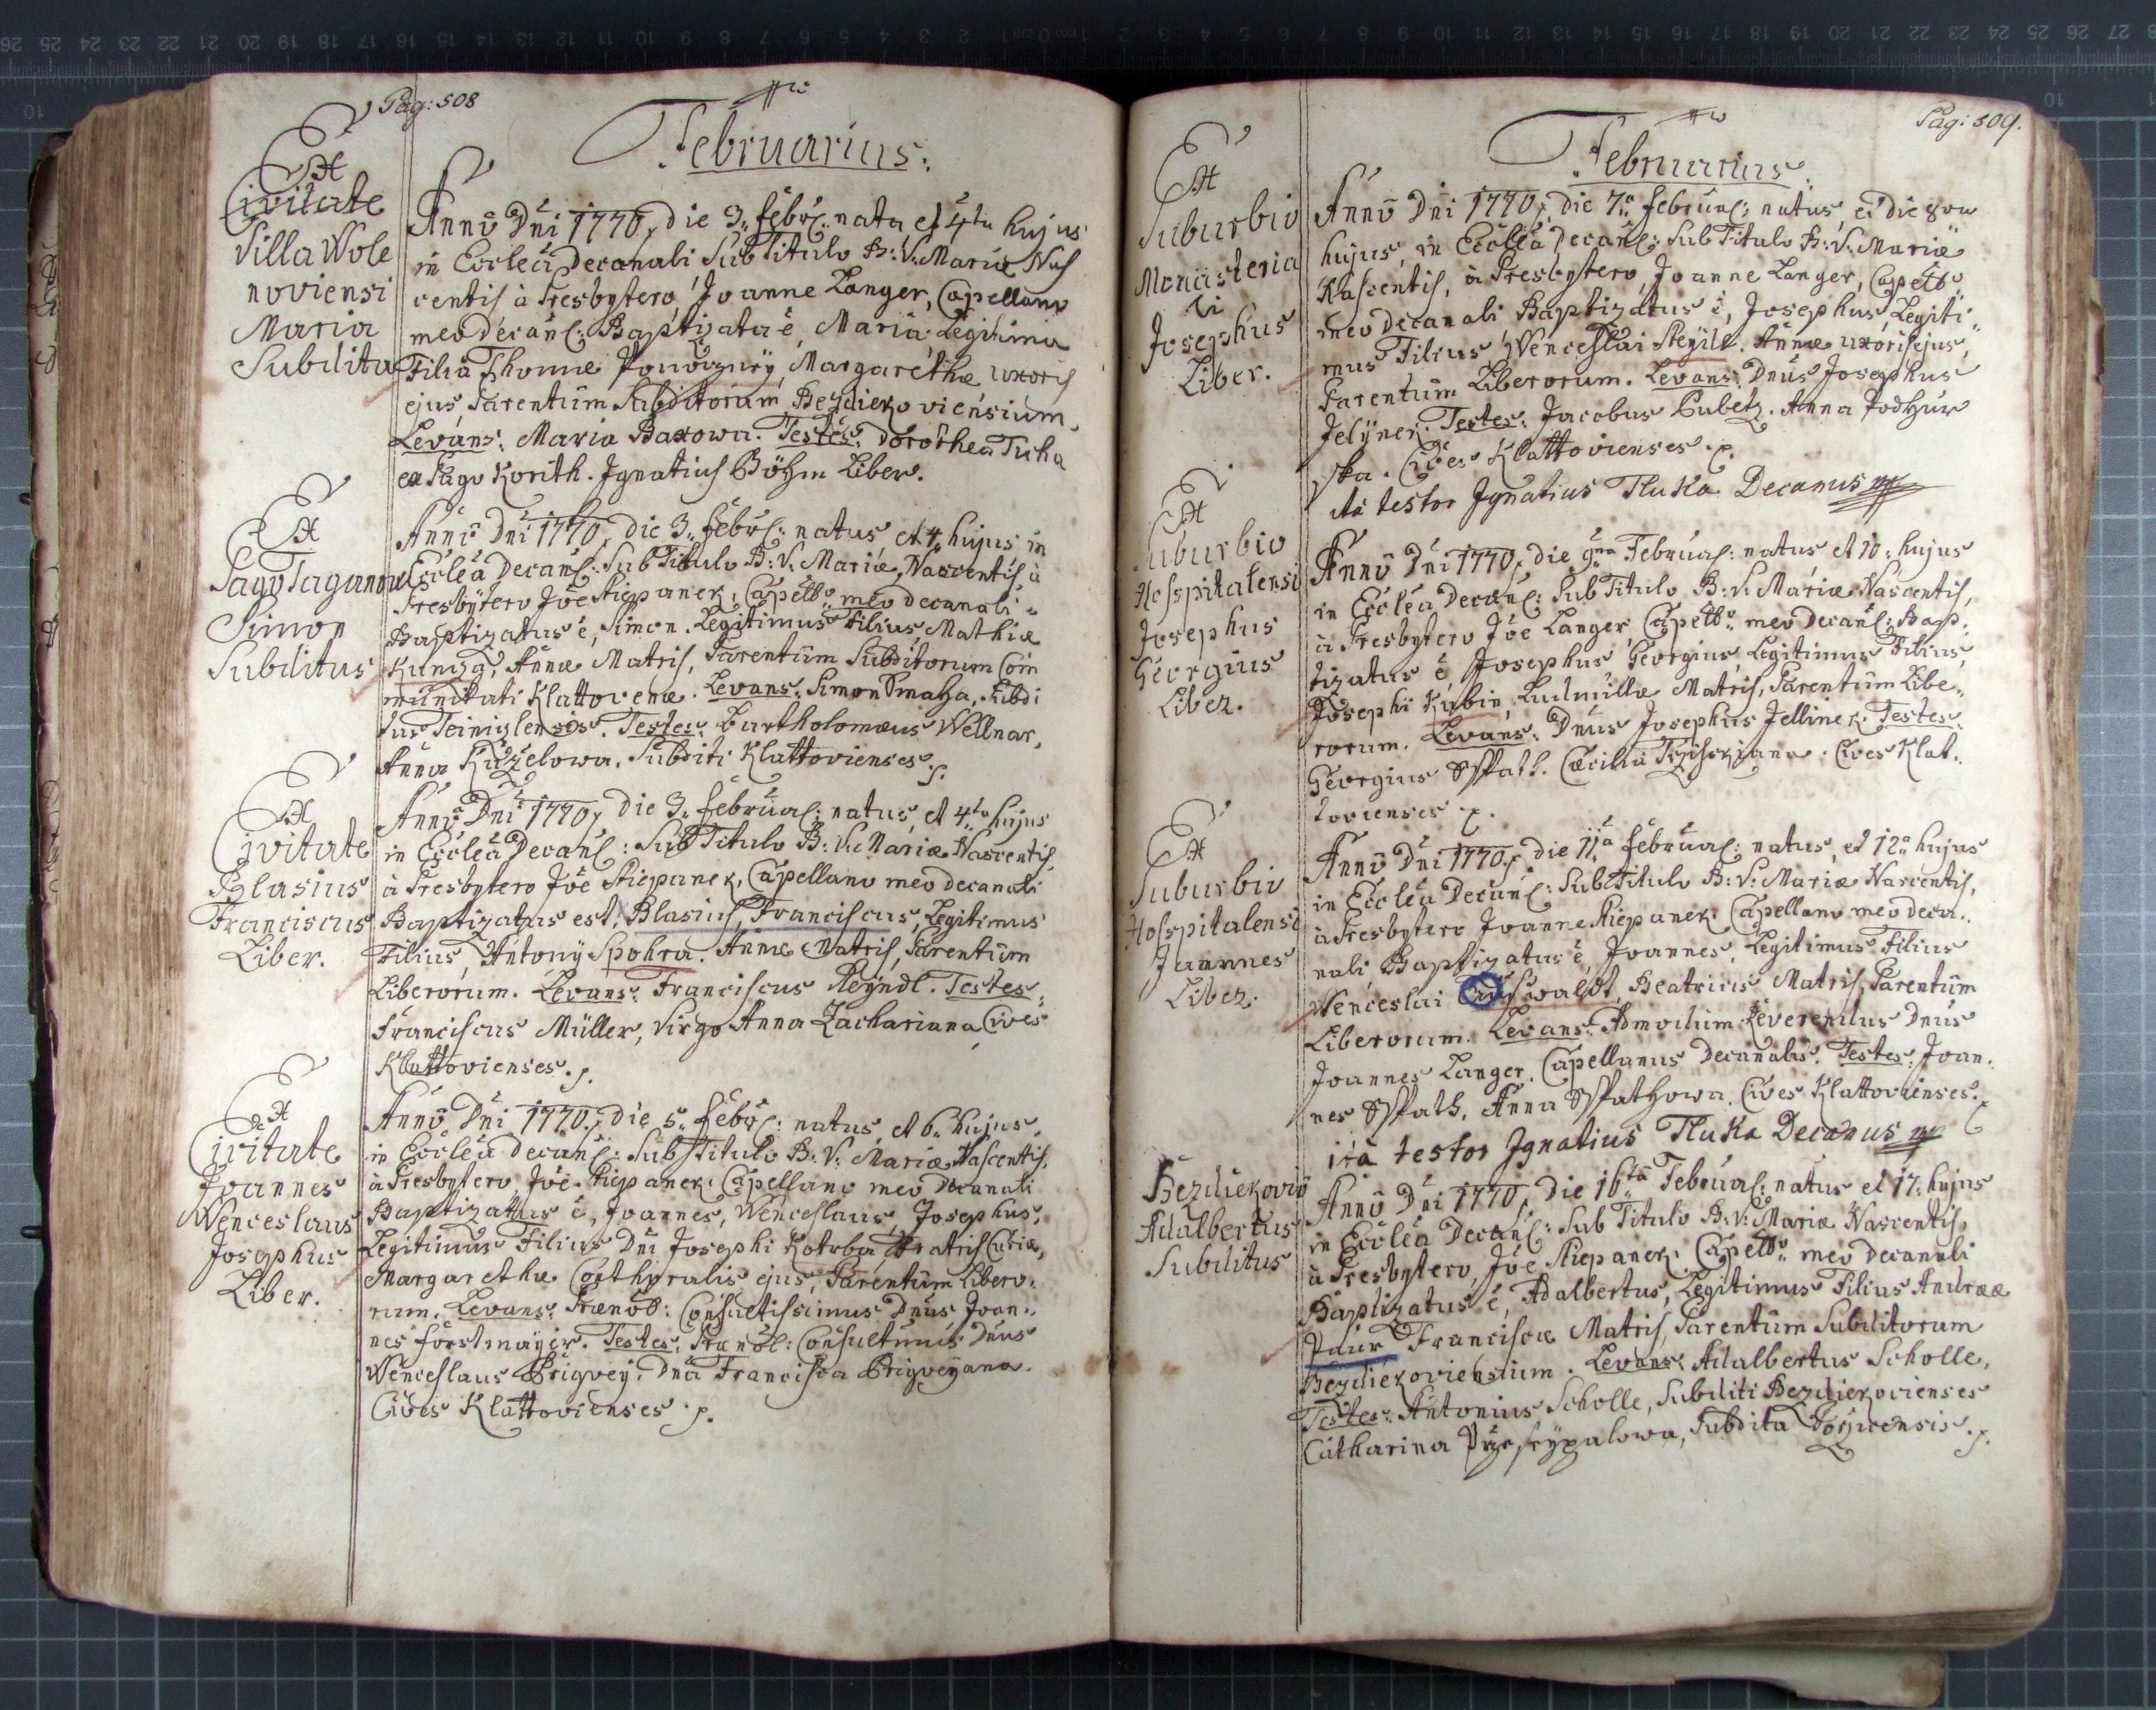 Pag: 508
Februarius:
Ex
Civitate
Villa Wole
noviensi
Maria
Subdita
Anno Dni 1770, die 3. Febr: nata et 4ta hujus
in Eccleâ Decanali Sub Titulo B: V. Mariæ Nas
centis à Presbytero Joanne Langer, Capellano
meo decanl: Baptizata ē, Maria Legitima
Filia Thomæ Margarethæ uxoris
ejus, Parentum Subditorum Beziekoviensium.
Levans: Maria Baxowa. Testes: Dorothea Tuha
ex Pago Korith. Ignatius Böhm Liber.
Ex
Pago
Simon
Subditus
Anno Dni 1770, die 3. Febr: natus et 4. hujus in
Eccleâ Decanl: Sub Titulo B. V. Mariæ, Nascentis à
Presbytero Joe Stiepanek, Capello meo decanali
Baptizatus ē, Simon. Legitimus Filius, Mathiæ
Annæ Matris, Parentum Subditorum Com
munitati Klattovenæ. Levans: Simon Smaha, Subdi
tus Teiniglensis. Testes: Bartholomæus Wellnar,
Anna Kuzelowa. Subditi Klattovienses.
Ex
Civitate
Blasius
Franciscus
Liber.
Anno Dni 1770, die 3. Februal: natus, et 4ta hujus
in Eccleâ Decanl: Sub Titulo B: V. Mariæ Nascentis
à Presbytero Joe Stiepanek, Capellano meo decanali
Baptizatus est, Blasius, Franciscus, Legitimus
Filius, Antony Spohra. Annæ Matris, Parentum
Liberorum. Levans: Franciscus Reyndl. Testes:
Franciscus Müller, Virgo Anna Zachariana Cives
Klattovienses.
Ex
Civitate
Joannes
Wenceslaus
Josephus
Liber.
Anno Dni 1770, die 5. Febr: natus, et 6. hujus,
in Eccleâ decanl: Sub Titulo B: V: Mariæ Nascentis,
à Presbytero Joe Stiepanek Capellano meo decanali
Baptizattus ē, Joannes, Wenceslaus, Josephus,
Legitimus Filius Dni Josephi Kotrba,
Margarethæ Conthoralis ejus, Parentum Libero-
rum. Levans: Prænob: Consultissimus Dnus Joan-
nes Forstmayer. Testes: Prænob: Consultmus Dnus
Wenceslaus Prigvey. Dna Francisca Prigveyana.
Cives Klattovienses.
Pag: 509.
Februarius:
Ex
Suburbio
Monasteria
li
Josephus
Liber.
Anno Dni 1770, die 7. Februal: natus, et die 8va
hujus, in Eccleâ decanl: Sub Titulo B: V. Mariæ
Nascentis, à Presbytero, Joanne Langer, Capello
meo decanali Baptizatus ē, Josephus, Legiti-
mus Filius, Wenceslai Steyill. Annæ uxoris ejus,
Parentum Liberorum. Levans: Dnus Josephus
Jelÿnek. Testes: Jacobus Cubetz. Anna Podhur
ska. Cives Klattovienses.
Ita testor Ignatius Tluka Decanus
Ex
Suburbio
Hospitalensi
Josephus
Georgius
Liber.
Anno Dni 1770, die 9na Februal: natus et 10. hujus
in Eccleâ Decanl: Sub Titulo B: V: Mariæ Nascentis,
à Presbytero Joe Langer, Capello meo Decanl: Bap-
tizatus ē, Josephus Georgius, Legitimus Filius,
Josephi Kubin, Ludmillæ Matris, Parentum Libe-
rorum. Levans: Dnus Josephus Jellinek. Testes:
Georgius Spath. Cæcilia Cives Klat-
tovienses.
Ex
Suburbio
Hospitalensi
Joannes
Liber.
Anno Dni 1770, die 11a Februal: natus, et 12a hujus
in Eccleâ Decanl: Sub Titulo B: V: Mariæ Nascentis,
à Presbytero Joanne Stiepanek, Capellano meo deca-
nali Baptizatus ē, Joannes, Legitimus Filius
Wenceslai Beatricis Matris, Parentum
Liberorum. Levans: Admodum Reverendus Dnus
Joannes Langer, Capellanus Decanalis. Testes: Joan-
nes Spath, Anna Spathowa. Cives Klattovienses.
ita testor Ignatius Tluka Decanus
Beziekovio
Adalbertus
Subditus
Anno Dni 1770, die 16ta Februal: natus et 17. hujus
in Eccleâ Decanl: Sub Titulo B: V: Mariæ Nascentis,
à Presbytero, Joe Stiepanek. Capello meo decanali
Baptizatus ē, Adalbertus, Legitimus Filius Andreæ
Paur, Franciscæ Matris, Parentum Subditorum
Beziekoviensium. Levans: Adalbertus Scholle,
Testes: Antonius Scholle, Subditi Beziekovienses
Catharina Subdita